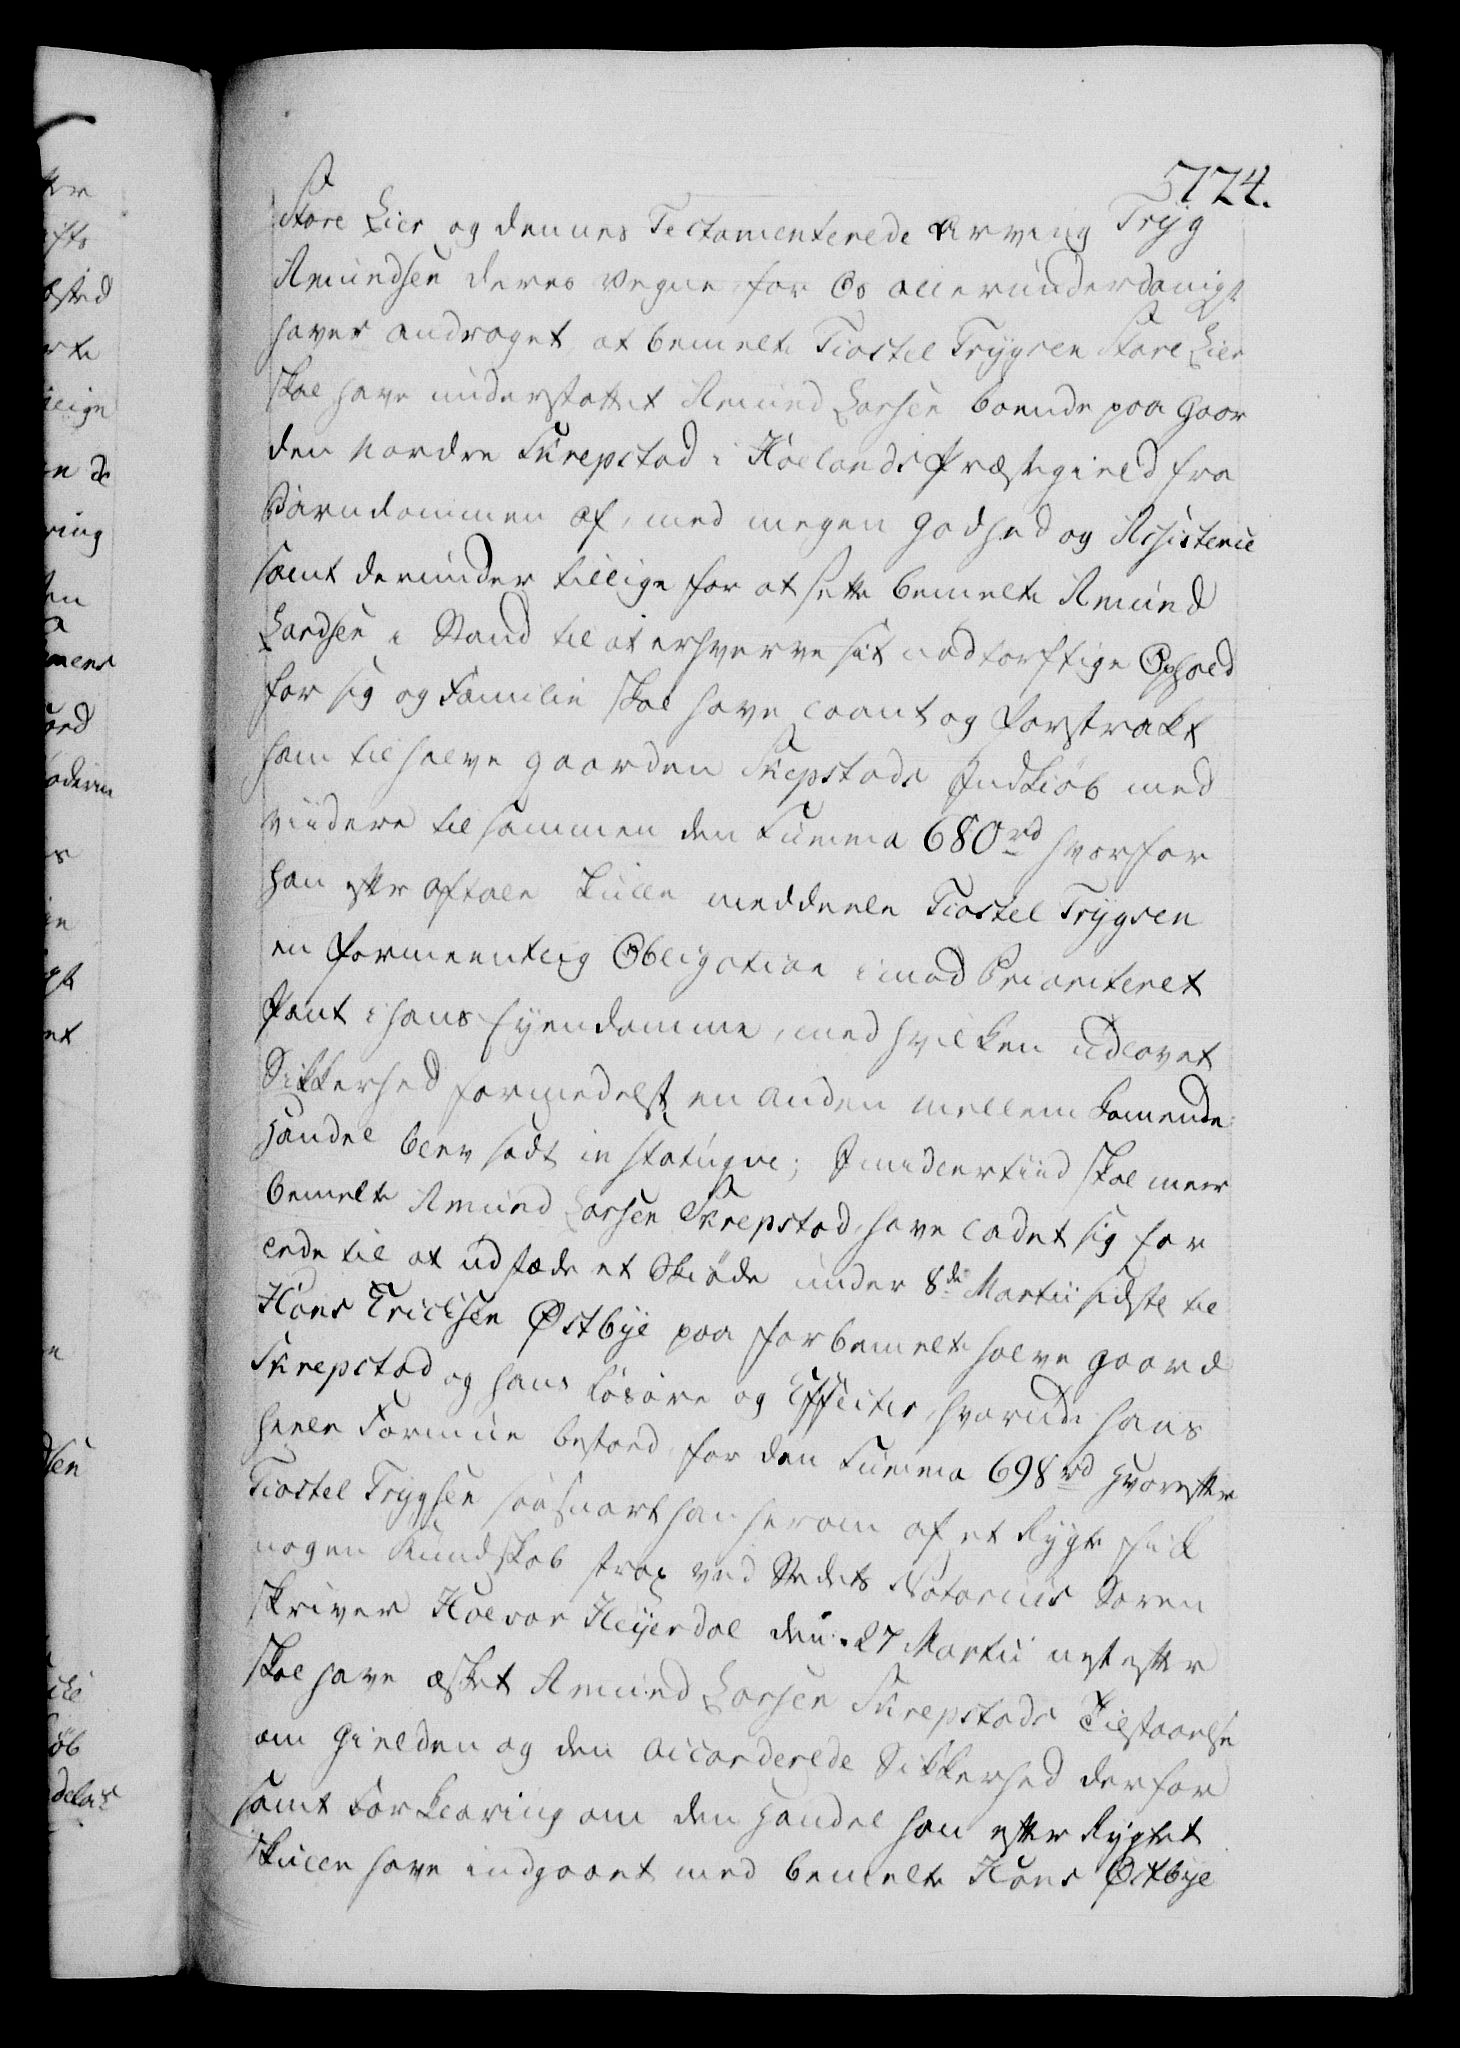 5724.
Store Lier og dennes Testamenterede Arving Tryg
Amundsen deres Vegne, for Os allerunderdanigst
haver andraget, at bemelte Tiostel Trygsen Store Lier
skal have understøttet Amund Larsen boende paa Gaar
den Nordre Skrepstad i Hølands Præstegield fra
Barndommen af, med megen Godhed og Assistence
samt derunder tillige for at sætte bemelte Amund
Larsen i Stand til at erhverve sit nødtørftige Ophold
for sig og Familie skal have laant og forstrakt
ham til halve Gaarden Skrepstads Indkiøb med
viidere tilsammen den Summa 680 rd hvorfor
han efter Aftale skulle meddeele Tiostel Trygsen
en formeentlig Obligation imod Prioriteret
Pant i hans Eyendomme, med hvilken udlovet
Sikkerhed formedelst en anden mellem komende
Handel blev ladt in statuqve; Imidlertiid skal meer
bemelte Amund Larsen Skrepstad, have ladet sig for
lede til at udstæde et Skiøde under 8de Martii sidstl. til
Hans Erichsen Østbye paa forbemelte halve Gaard
Skrepstad og hans Løsøre og Effecter, hvorudi hans
heele Formue bestoed, for den Summa 698 rd hvorefter
Tiostel Trygsen saasnart han herom af et Rygte fick
nogen Kundskab strax ved Stedets Notarius Soren
skriver Halvor Heyerdal den 27 Martii nest efter
skal have æsket Amund Larsen Skrepstads Tilstaaelse
om Gielden og den accorderede Sikkerhed derfor
samt Forklaring om den Handel han efter Rygtet
skulle have indgaaet med bemelte Hans Østbye